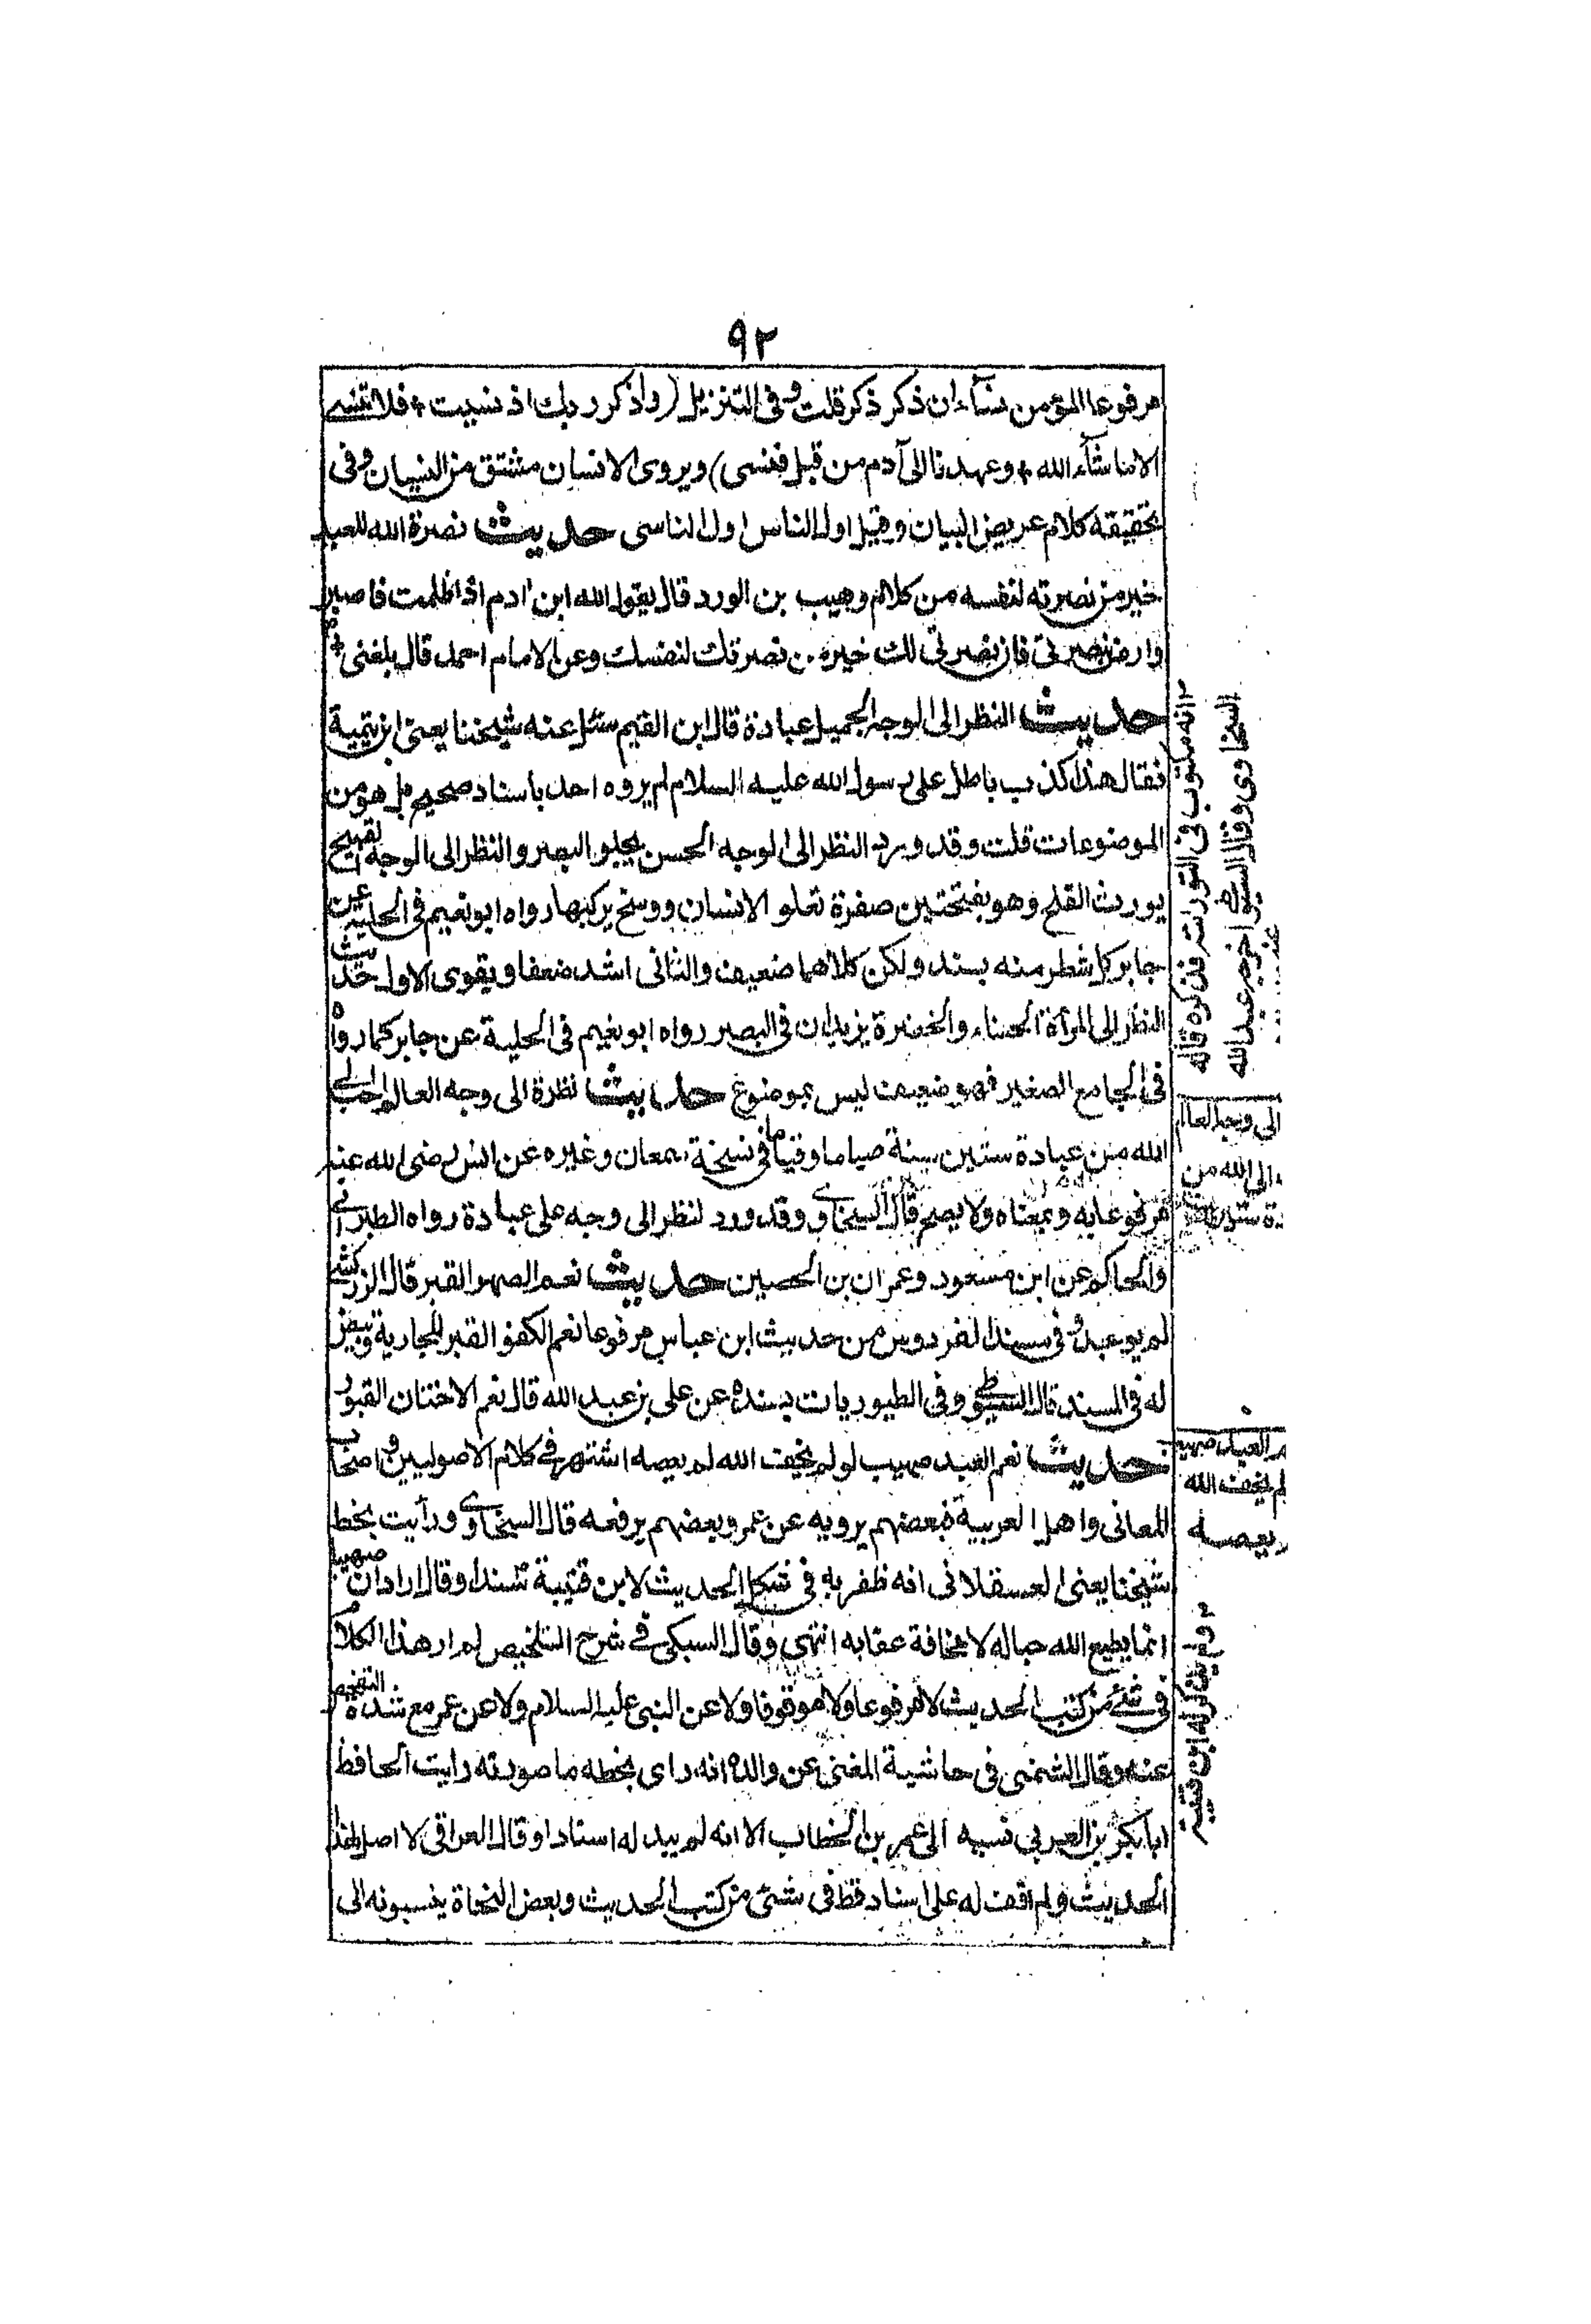 ٩٢
مرفوعا المؤمن نساء ان ذكر ذكر قلت وفى التنزيل (واذكر ربك اذ نسيت * فلا تنسى
الا ما شآء الله * وعهدنا الى آدم من قبل فنسى) ويروى الانسان مشتق من النسيان وفى
تحقيقه كلام عريض البيان وقيل اول الناس اول الناسى حديث نصرة الله للعبد
خير من نصرته لنفسه من كلام وهيب بن الورد قال يقول الله ابن ادم اذا ظلمت فاصبر
وارض بنصرتى فان نصرتى لك خير من نصرتك لنفسك وعن الامام احمد قال بلغنى
حديث النظر الى الوجه الجميل عبادة قال ابن القيم سئل عنه شيخنا يعنى ابن تيمية
فقال هذا كذب باطل على رسول الله عليه السلام لم يروه احد بأسناد صحيح بل هو من
الموضوعات قلت وقد ورد النظر الى الوجه الحسن يجلو البصر والنظر الى الوجه القبيح
يورث القلح وهو بفتحتين صفرة تعلو الانسان ووسخ يركبها رواه ابو نعيم فى الحلية عن
جابر كل شطر منه بسند ولكن كلاهما ضعيف والثانى اشد ضعفا ويقوى الاول حديث
النظر الى المرأة الحسناء والخضرة يزيدان فى البصر رواه ابو نعيم فى الحلية عن جابر كما رواه
فى الجامع الصغير فهو ضعيف ليس بموضوع حديث نظرة الى وجه العالم احب الى
الله من عبادة ستين سنة صياما وقياما فى نسخة سمعان وغيره عن انس رضى الله عنه
مرفوعا به وبمعناه ولا يصح قال السخاوى وقد ورد لنظر الى وجه على عبادة رواه الطبرانى
والحاكم عن ابن مسعود وعمران بن الحصين حديث نعم الصهر القبر قال الزركشى
لم يوجد وفى مسند الفردوس من حديث ابن عباس مرفوعا نعم الكفؤ القبر للجارية وتبيض
له فى المسند قال السيوطى وفى الطيوريات بسنده عن على بن عبد الله قال نعم الاختان القبور
حديث نعم العبد صهيب لو لم يخف الله لم يعصه اشتهر فى كلام الاصوليين واصحاب
المعانى واهل العربية فبعضهم يرويه عن عمر وبعضهم يرفعه قال السخاوى ورأيت بخط
شيخنا يعنى العسقلانى انه ظفر به فى مشكل الحديث لابن قتيبة مسندا وقال اراد ان صهيبا
انما يطيع الله حباله لا مخافة عقابه انتهى وقال السبكى فى شرح التلخيص لم ار هذا الكلام
فى شئ من كتب الحديث لا مرفوعا ولا موقوفا ولا عن النبى عليه السلام ولا عن عمر مع شدة التفحص
عنه وقال الشمنى فى حاشية المغنى عن والده انه رأى بخطه ما صورته رايت الحافظ
ابا بكر بن العربى نسبه الى عمر بن الخطاب الا انه لم يبد له اسنادا وقال العراقى لا اصل لهذا
الحديث ولم اقف له على اسناد قط فى شئ من كتب الحديث وبعض النحاة ينسبونه الى
انه مكتوب فى التورات فذكره قاله
السخاوى وقال السيوطى اخرجه عبد الله
الى وجه العالم
الى الله من
العبد صهيب
لم يخف الله
يعصه